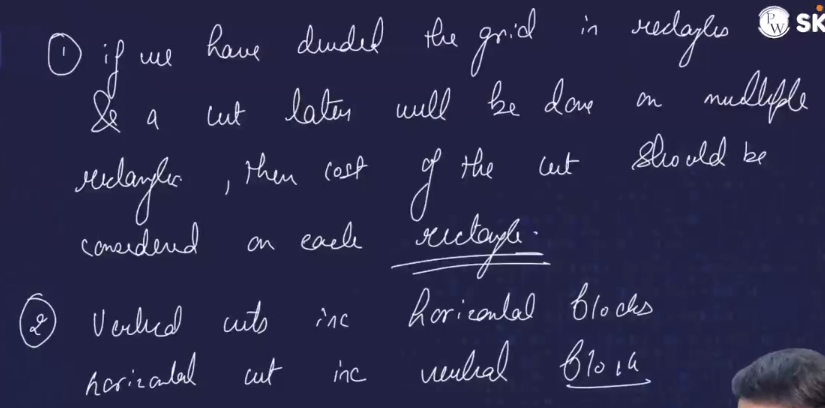 ① if we have divided the grid in rectangles
PW SK
& a cut later will be done on multiple
rectangles, then cost of the cut should be
considered on each rectangle.
② Vertical cuts inc horizontal blocks
horizontal cut inc vertical block